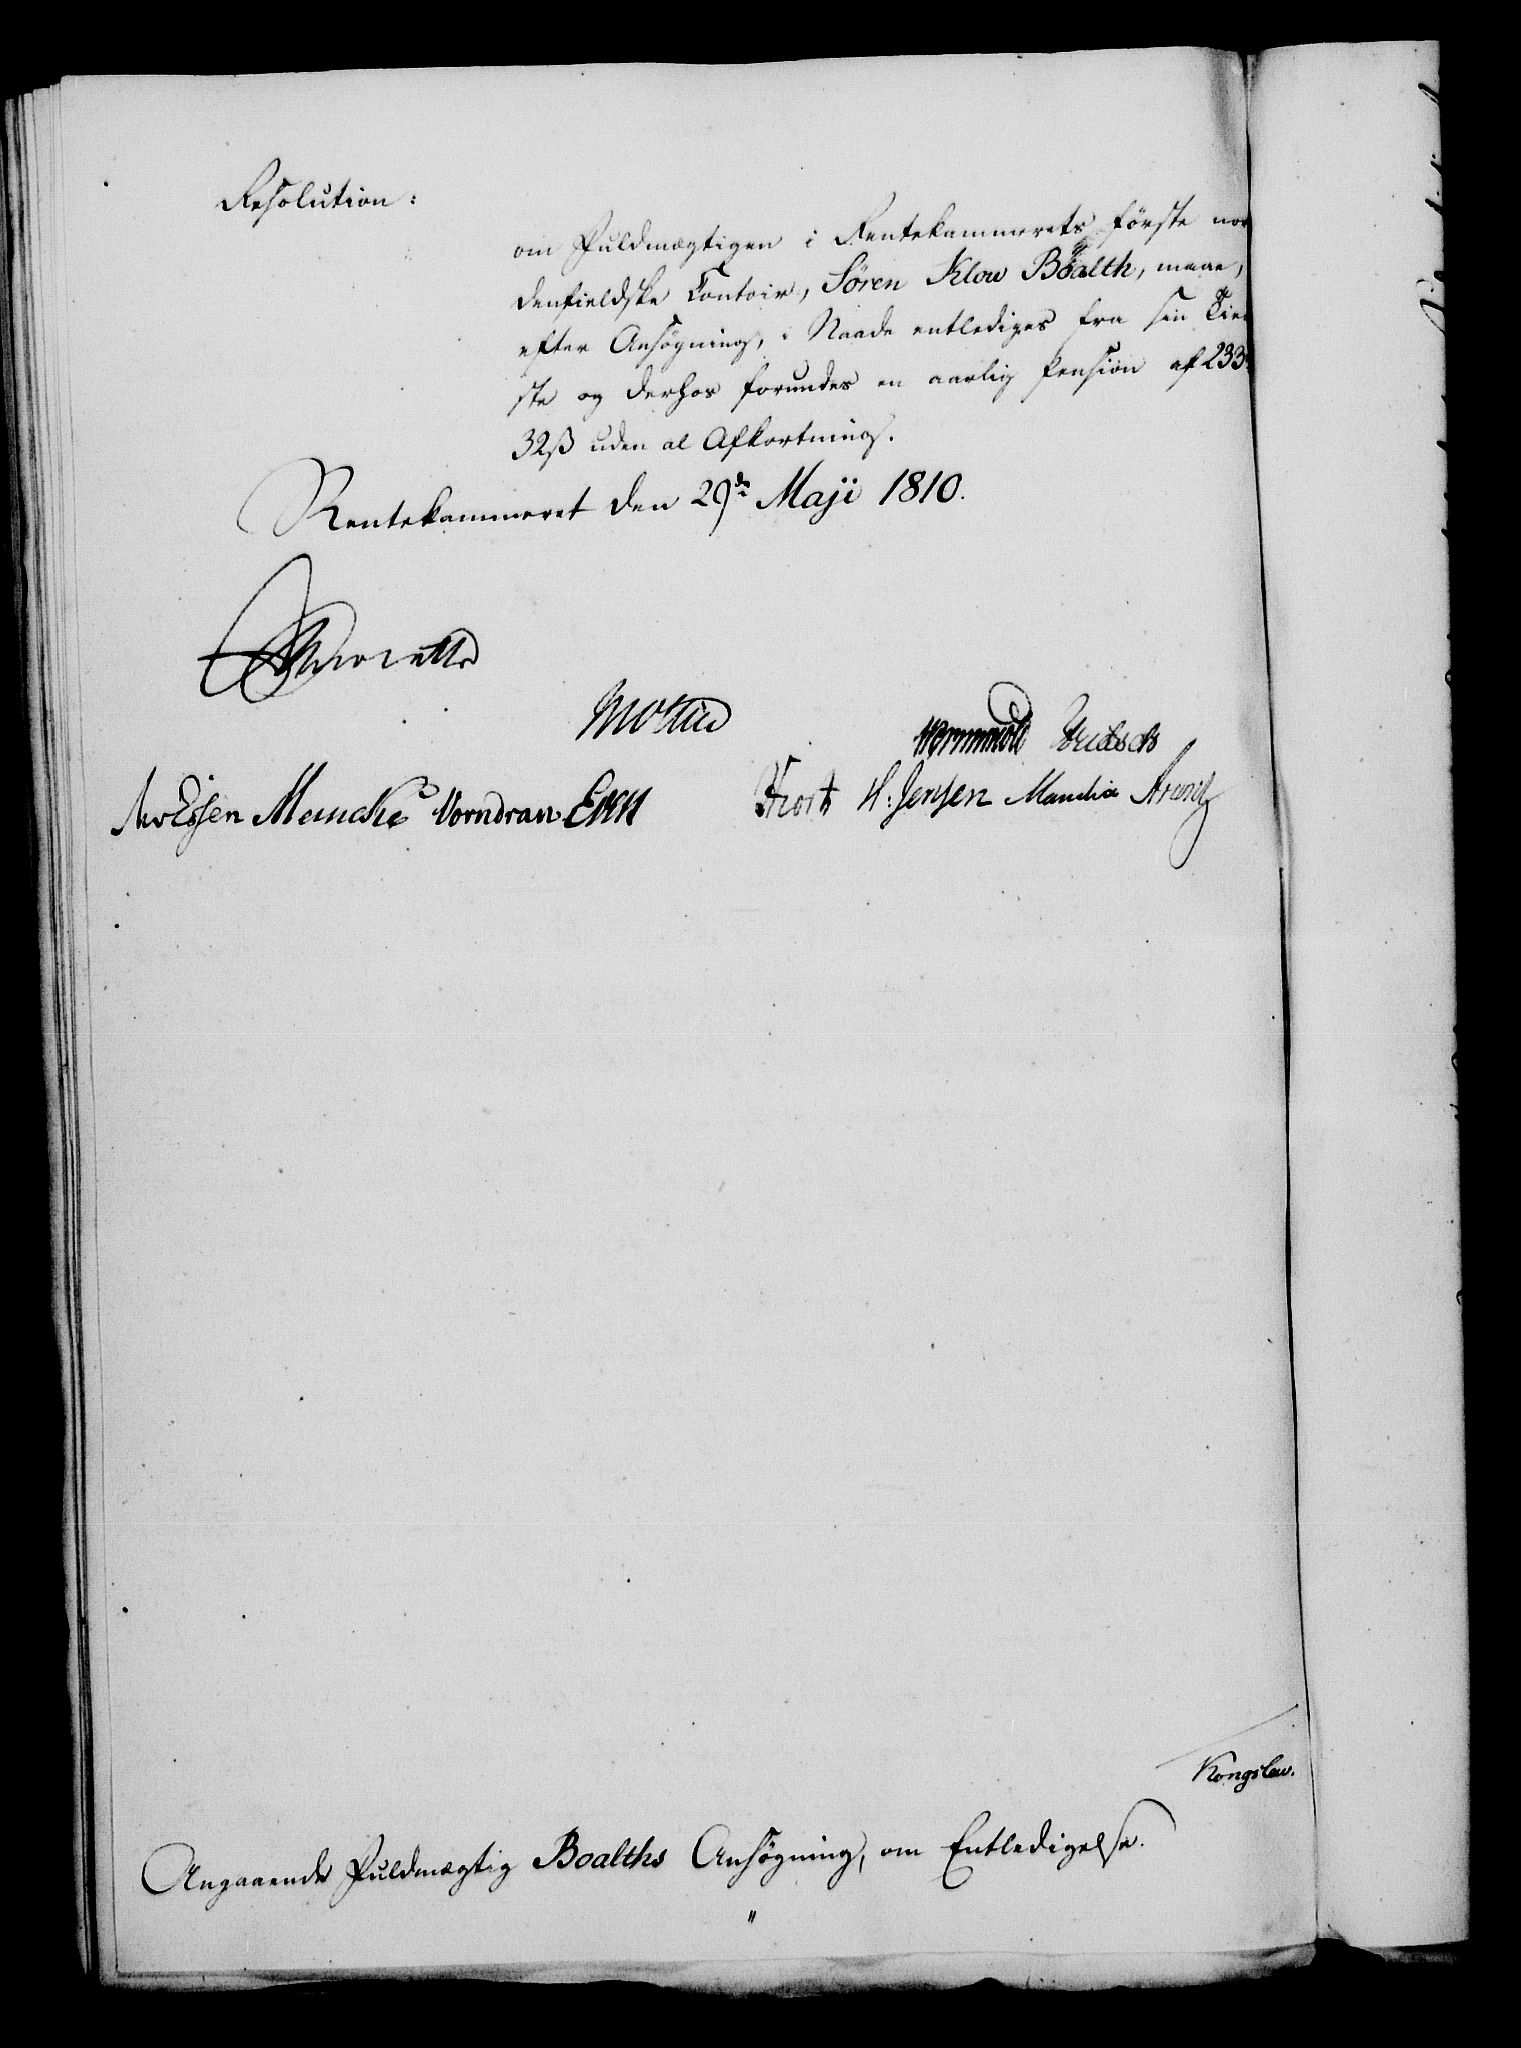 Resolution:
om Fuldmægtigen i Rentekammerets første nor
denfieldske Contoir, Søren Klow Boalth, maae,
efter Ansøgning, i Naade entlediges fra sin Tiene
ste og derhos forundes en aarlig Pension af 233
32ß uden al Afkortning.
Rentekammeret den 29de Maji 1810.
Wormskiold
Meincke Vorndran Even
H: Jensen Manthia
Kongslew.
Angaaende Fuldmægtig Boalths Ansøgning, om Entledigelse.
"